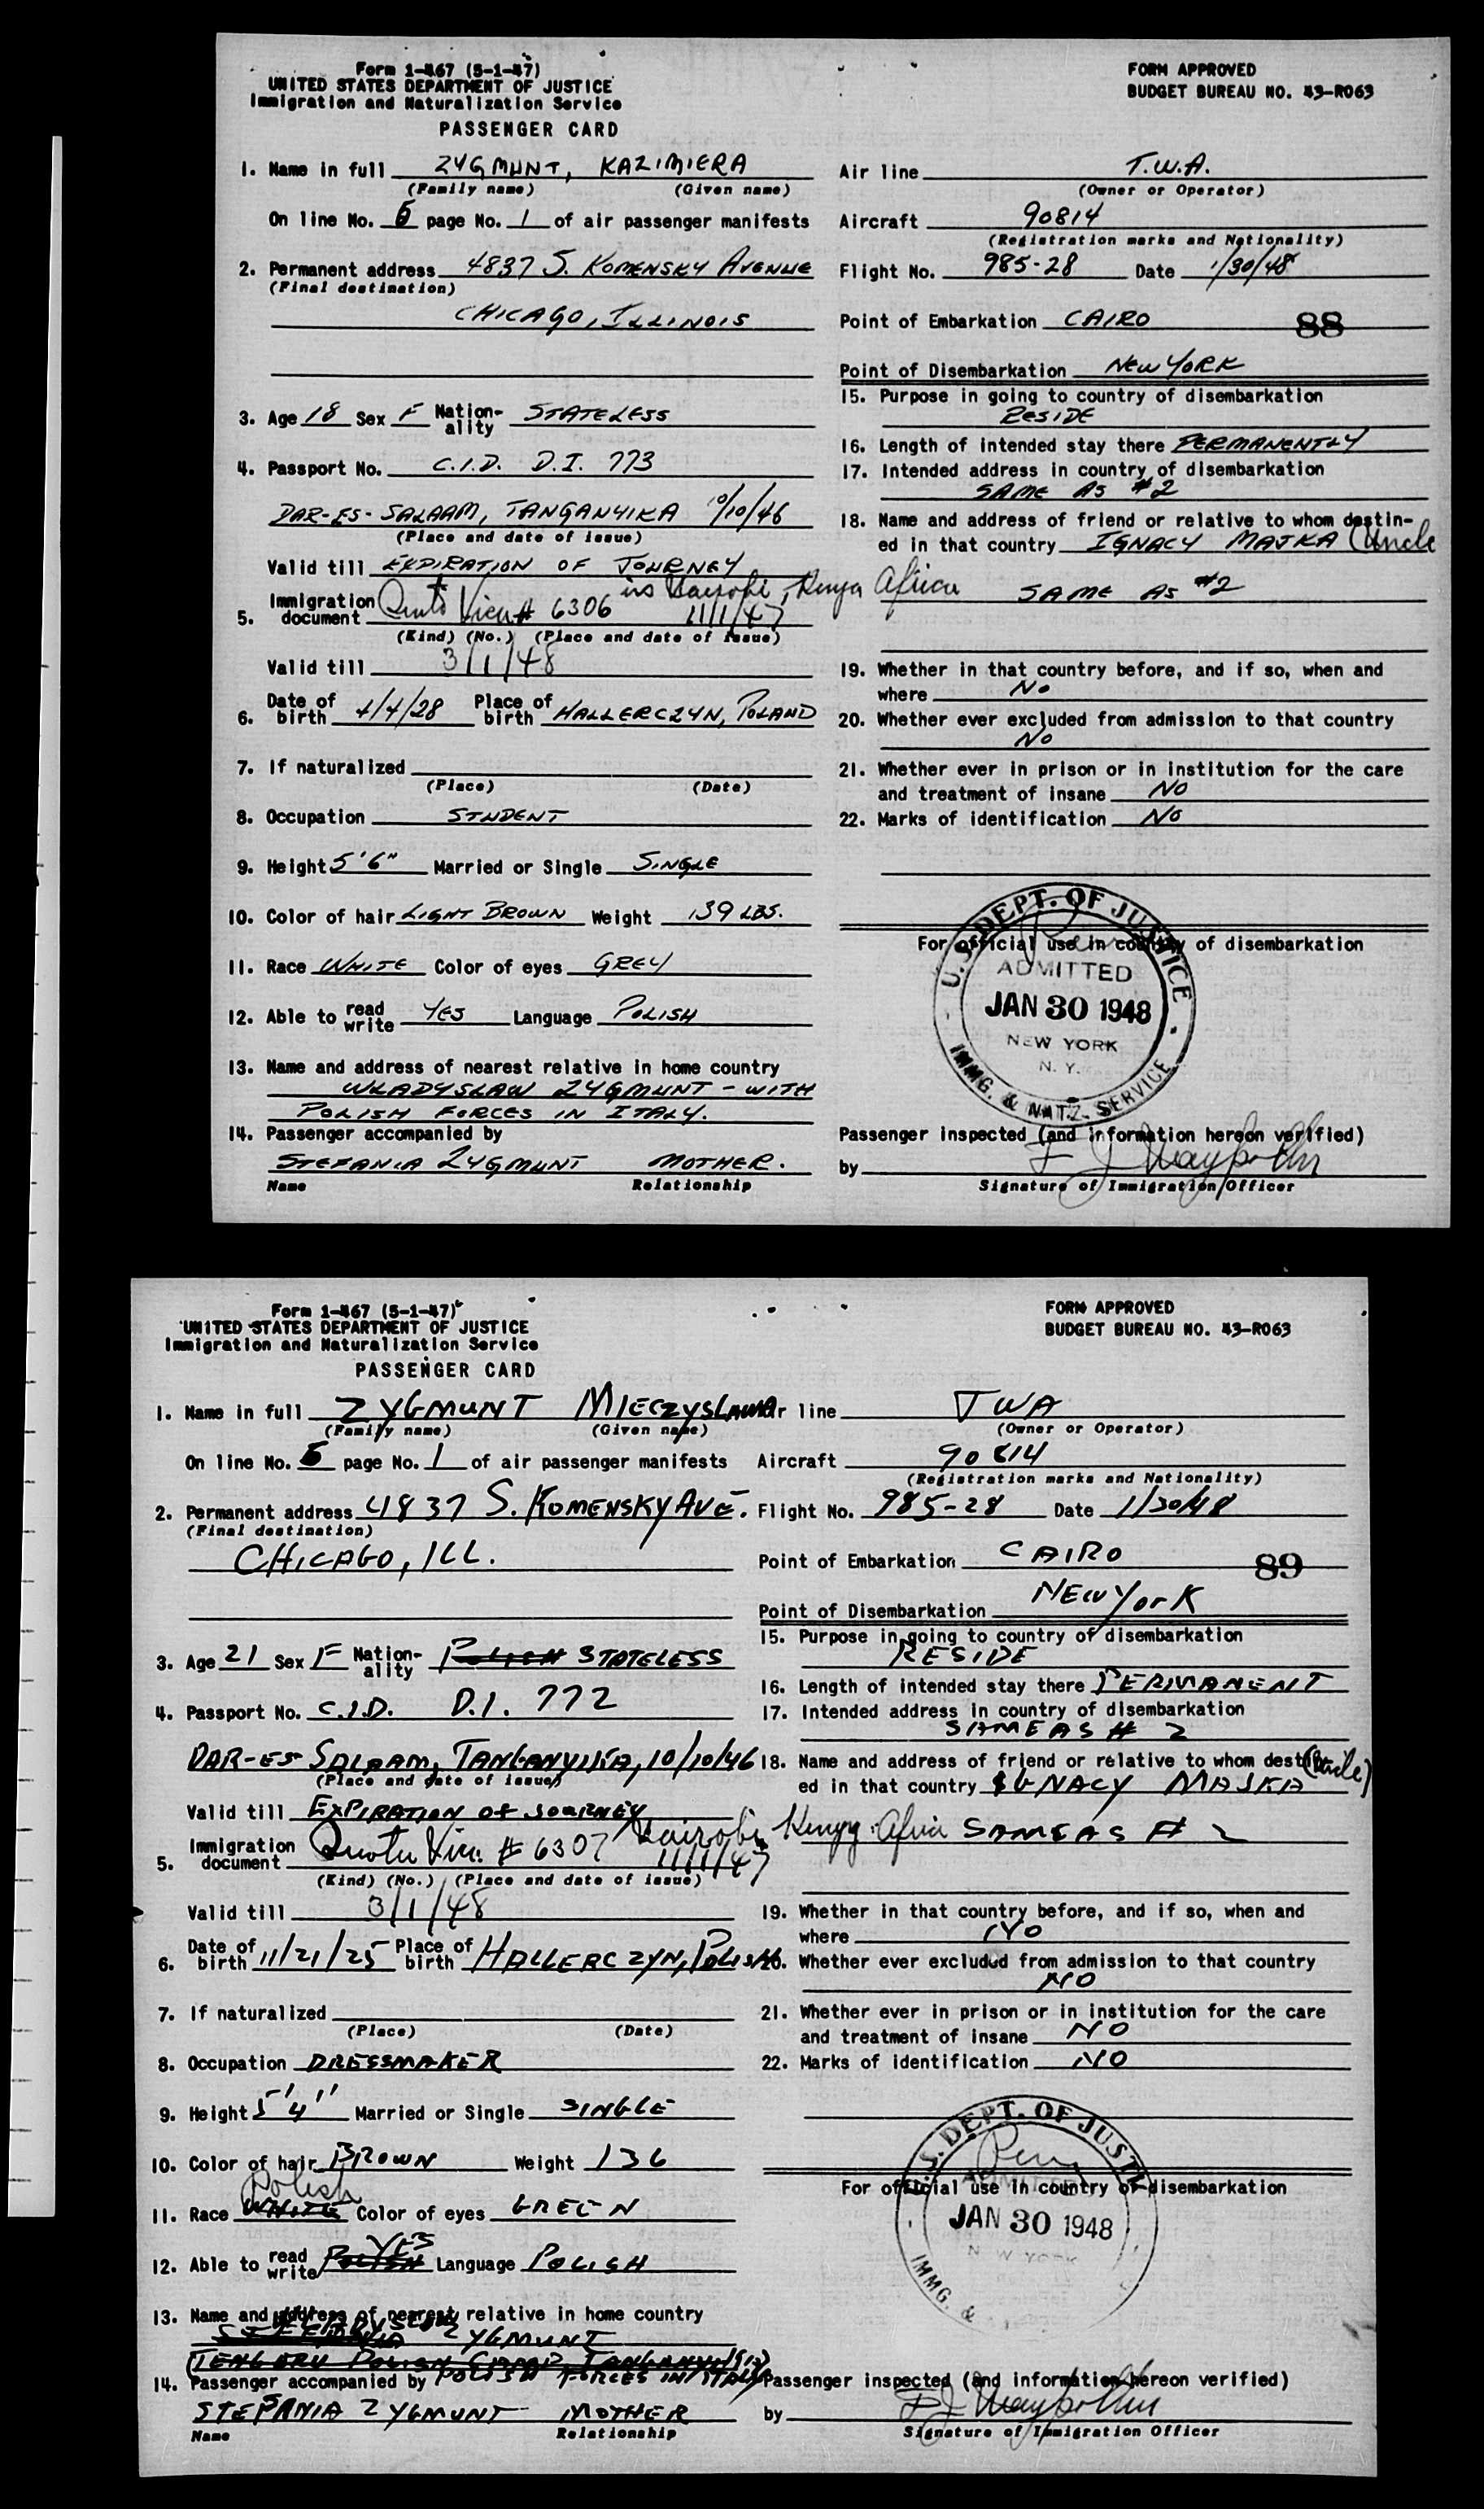 Form I-467 (5-1-47)
UNITED STATES DEPARTMENT OF JUSTICE
Immigration and Naturalization Service
PASSENGER CARD
FORM APPROVED
BUDGET BUREAU NO. 43-R063
1. Name in full ZYGMUNT, KAZIMIERA
(Family name) (Given name)
On line No. 5 page No. 1 of air passenger manifests
2. Permanent address 4837 S. KOMENSKY AVENUE
(Final destination)
CHICAGO, ILLINOIS
3. Age 18 Sex F Nationality STATELESS
4. Passport No. C.I.D. D.I. 773
DAR-ES-SALAAM, TANGANYIKA 10/10/46
(Place and date of issue)
Valid till EXPIRATION OF JOURNEY
5. Immigration document Quota Visa # 6306 is Nairobi, Kenya Africa 11/1/47
(Kind) (No.) (Place and date of issue)
Valid till 3/1/48
6. Date of birth 4/4/28 Place of birth HALLERCZYN, POLAND
7. If naturalized
(Place) (Date)
8. Occupation STUDENT
9. Height 5'6" Married or Single SINGLE
10. Color of hair LIGHT BROWN Weight 139 LBS.
11. Race WHITE Color of eyes GREY
12. Able to read write YES Language POLISH
13. Name and address of nearest relative in home country
WLADYSLAW ZYGMUNT - WITH
POLISH FORCES IN ITALY.
14. Passenger accompanied by
STEFANIA ZYGMUNT MOTHER.
Name Relationship
Air line T.W.A.
(Owner or Operator)
Aircraft 90814
(Registration marks and Nationality)
Flight No. 985-28 Date 1/30/48
Point of Embarkation CAIRO 88
Point of Disembarkation NEW YORK
15. Purpose in going to country of disembarkation
RESIDE
16. Length of intended stay there PERMANENTLY
17. Intended address in country of disembarkation
SAME AS #2
18. Name and address of friend or relative to whom destin-
ed in that country IGNACY MAJKA (Uncle
SAME AS #2
19. Whether in that country before, and if so, when and
where No
20. Whether ever excluded from admission to that country
No
21. Whether ever in prison or in institution for the care
and treatment of insane NO
22. Marks of identification No
For official use in country of disembarkation
U.S. DEPT. OF JUSTICE
ADMITTED
JAN 30 1948
NEW YORK
N. Y.
IMMG. & NATZ. SERVICE
Passenger inspected (and information hereon verified)
by
Signature of Immigration Officer
Form I-467 (5-1-47)
UNITED STATES DEPARTMENT OF JUSTICE
Immigration and Naturalization Service
PASSENGER CARD
FORM APPROVED
BUDGET BUREAU NO. 43-R063
1. Name in full ZYGMUNT MIECZYSLAWA
(Family name) (Given name)
On line No. 6 page No. 1 of air passenger manifests
2. Permanent address 4837 S. KOMENSKY AVE.
(Final destination)
CHICAGO, ILL.
3. Age 21 Sex F Nationality POLISH STATELESS
4. Passport No. C.I.D. D.I. 772
DAR-ES SALAAM, TANGANYIKA, 10/10/46
(Place and date of issue)
Valid till EXPIRATION OF JOURNEY
5. Immigration document Quota Visa # 6307 Nairobi Kenya Africa 11/1/47
(Kind) (No.) (Place and date of issue)
Valid till 3/1/48
6. Date of birth 11/21/25 Place of birth HALLERCZYN, POLISH
7. If naturalized
(Place) (Date)
8. Occupation DRESSMAKER
9. Height 5'4" Married or Single SINGLE
10. Color of hair BROWN Weight 136
11. Race WHITE Polish Color of eyes GREEN
12. Able to read write POLISH YES Language POLISH
13. Name and address of nearest relative in home country
STEFANIA WLADYSLAW ZYGMUNT
(TENGERU POLISH CAMP, TANGANYIKA)
POLISH FORCES IN ITALY
14. Passenger accompanied by
STEFANIA ZYGMUNT MOTHER
Name Relationship
Air line TWA
(Owner or Operator)
Aircraft 90814
(Registration marks and Nationality)
Flight No. 985-28 Date 1/30/48
Point of Embarkation CAIRO 89
Point of Disembarkation NEW YORK
15. Purpose in going to country of disembarkation
RESIDE
16. Length of intended stay there PERMANENT
17. Intended address in country of disembarkation
SAME AS # 2
18. Name and address of friend or relative to whom destin-
ed in that country IGNACY MAJKA (Uncle)
SAME AS # 2
19. Whether in that country before, and if so, when and
where NO
20. Whether ever excluded from admission to that country
NO
21. Whether ever in prison or in institution for the care
and treatment of insane NO
22. Marks of identification NO
For official use in country of disembarkation
U.S. DEPT. OF JUSTICE
ADMITTED
JAN 30 1948
NEW YORK
IMMG. &
Passenger inspected (and information hereon verified)
by
Signature of Immigration Officer